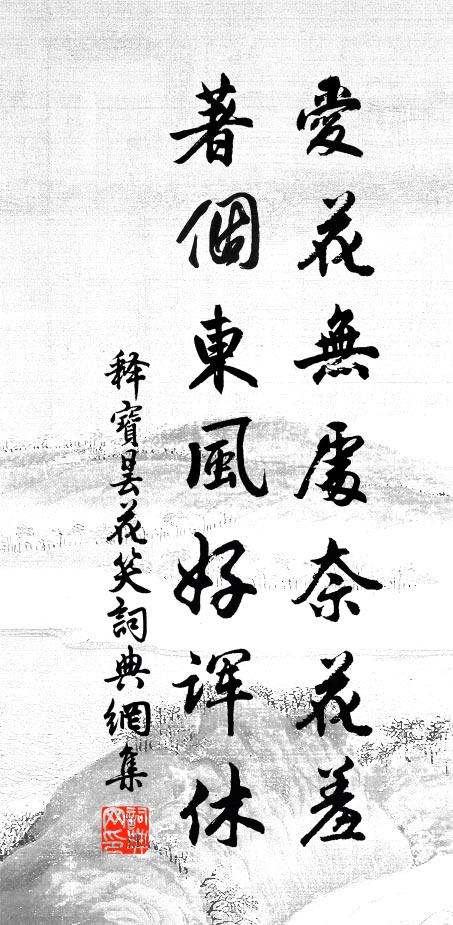 愛花無處奈花羞
著個東風好诨休
释寶曇花笑詞典網集